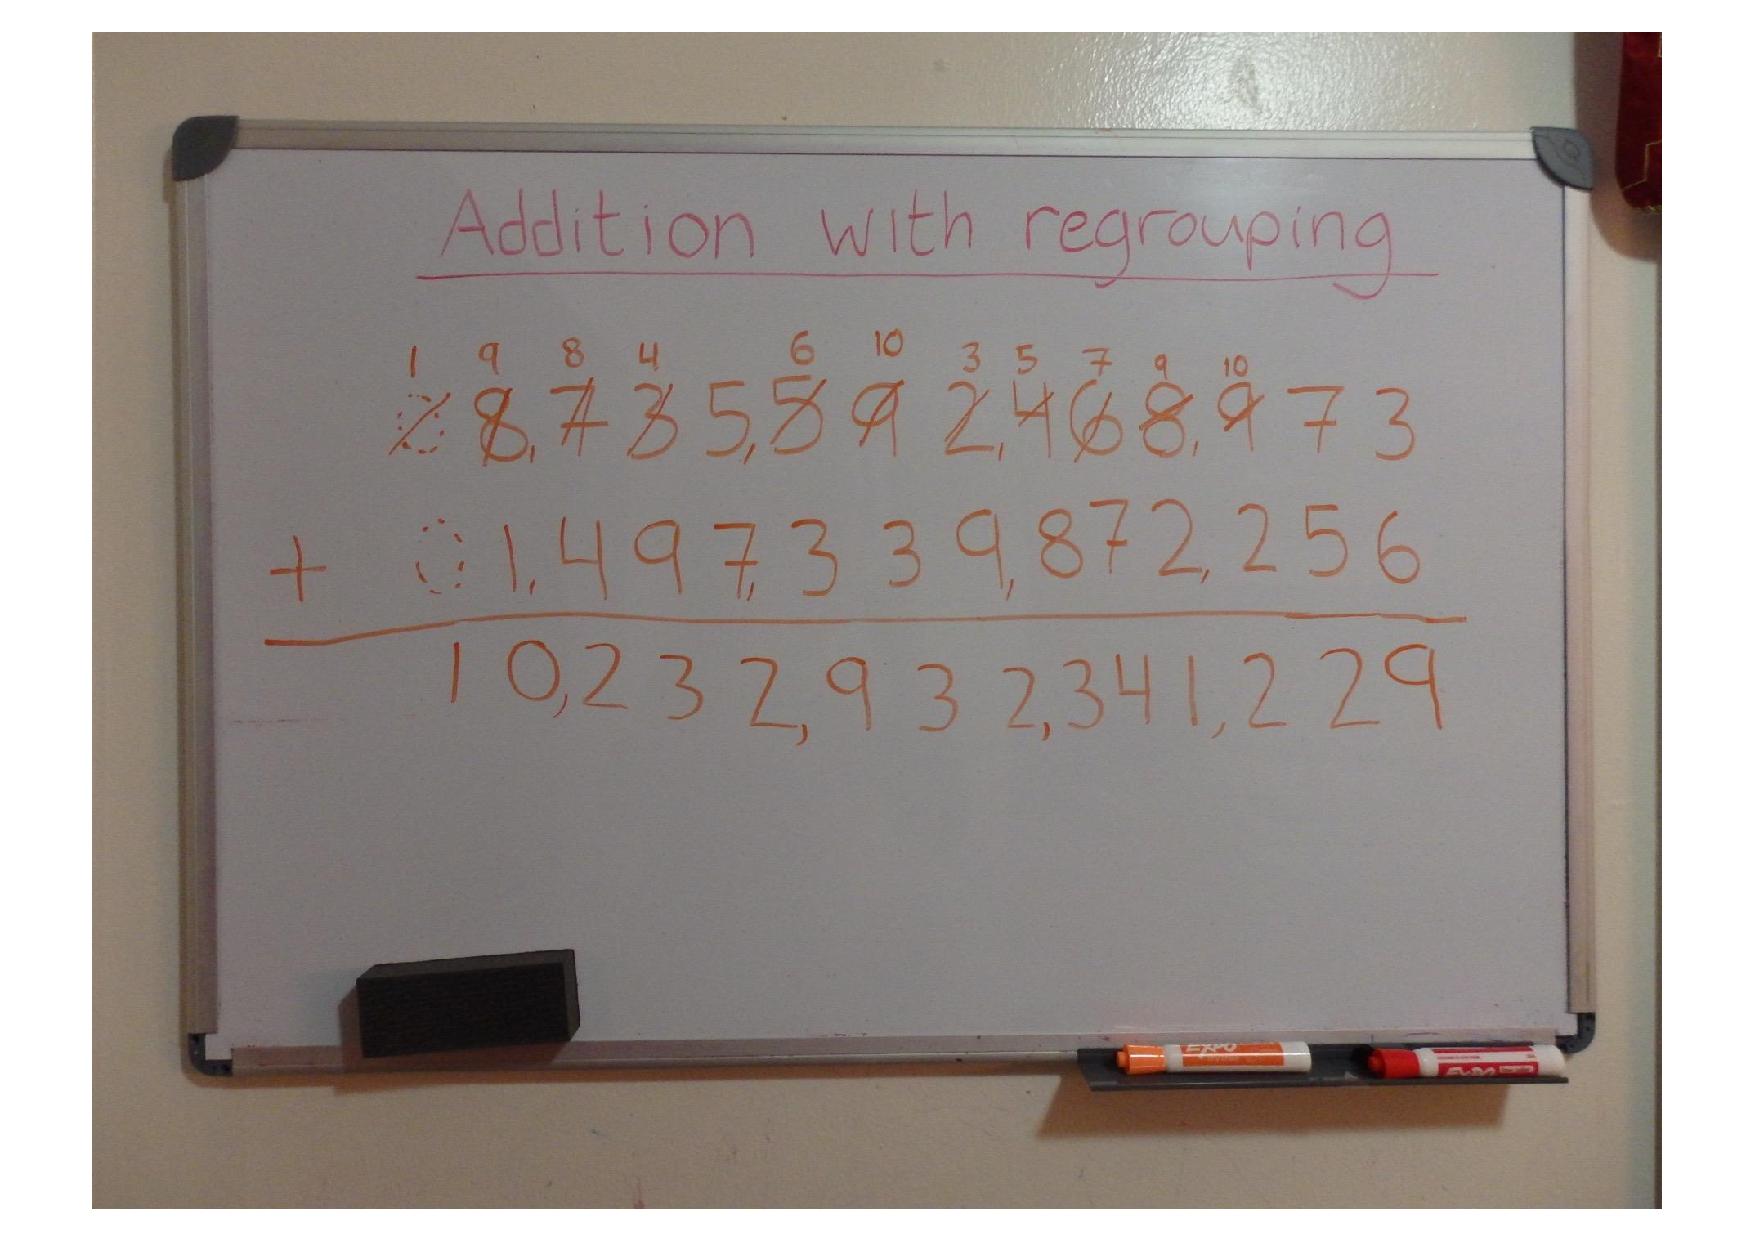 Addition with regrouping
1 9 8 4 6 10 3 5 7 9 10
08,735,592,468,973
+ 01,497,339,872,256
10,232,932,341,229
EXPO
EXPO